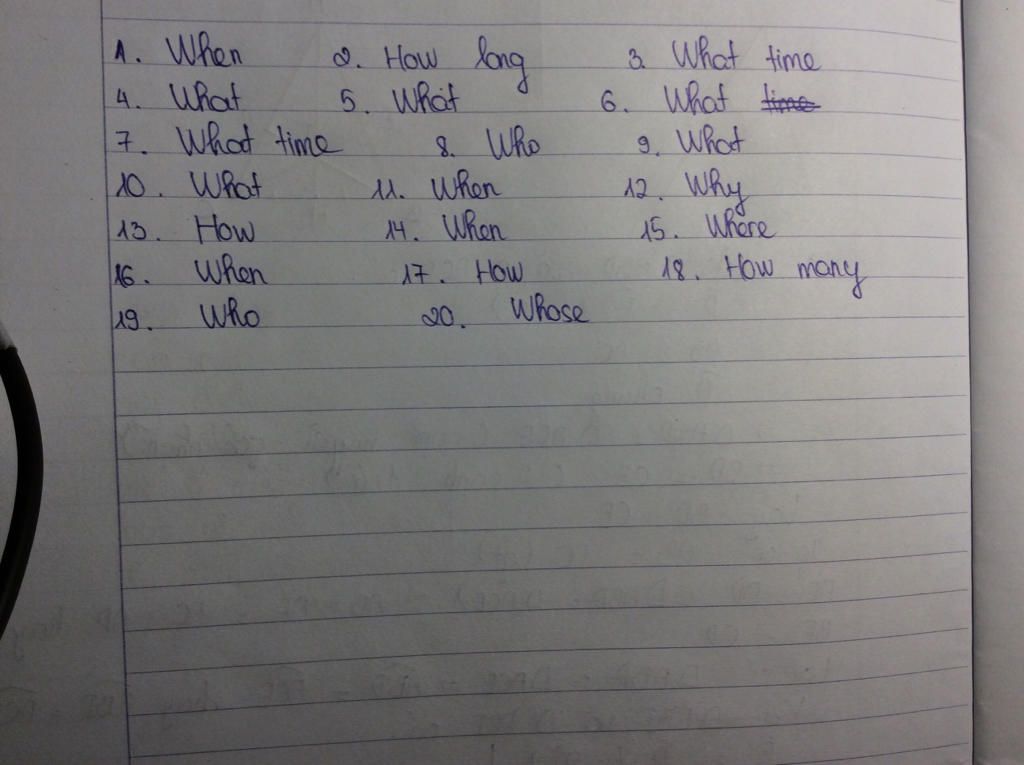 1. When 2. How long 3. What time
4. What 5. What 6. What ~~time~~
7. What time 8. Who 9. What
10. What 11. When 12. Why
13. How 14. When 15. Where
16. When 17. How 18. How many
19. Who 20. Whose